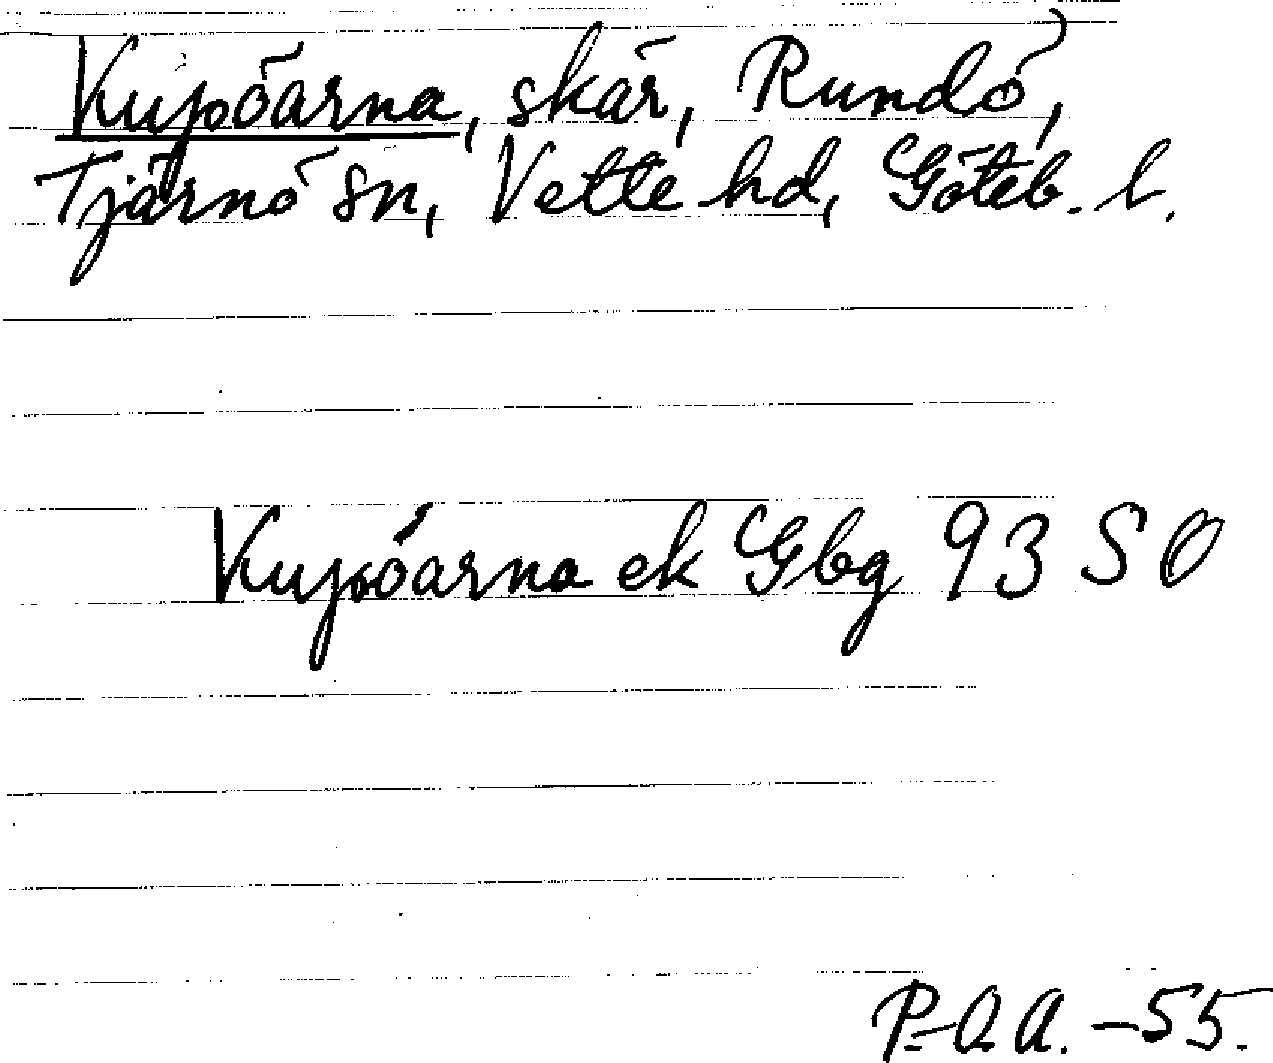 Kupöarna, skär, Rundö,
Tjärnö sn, Vette hd, Göteb. l.
Kupöarna ek Gbg 93 SO
P-O A. -55.